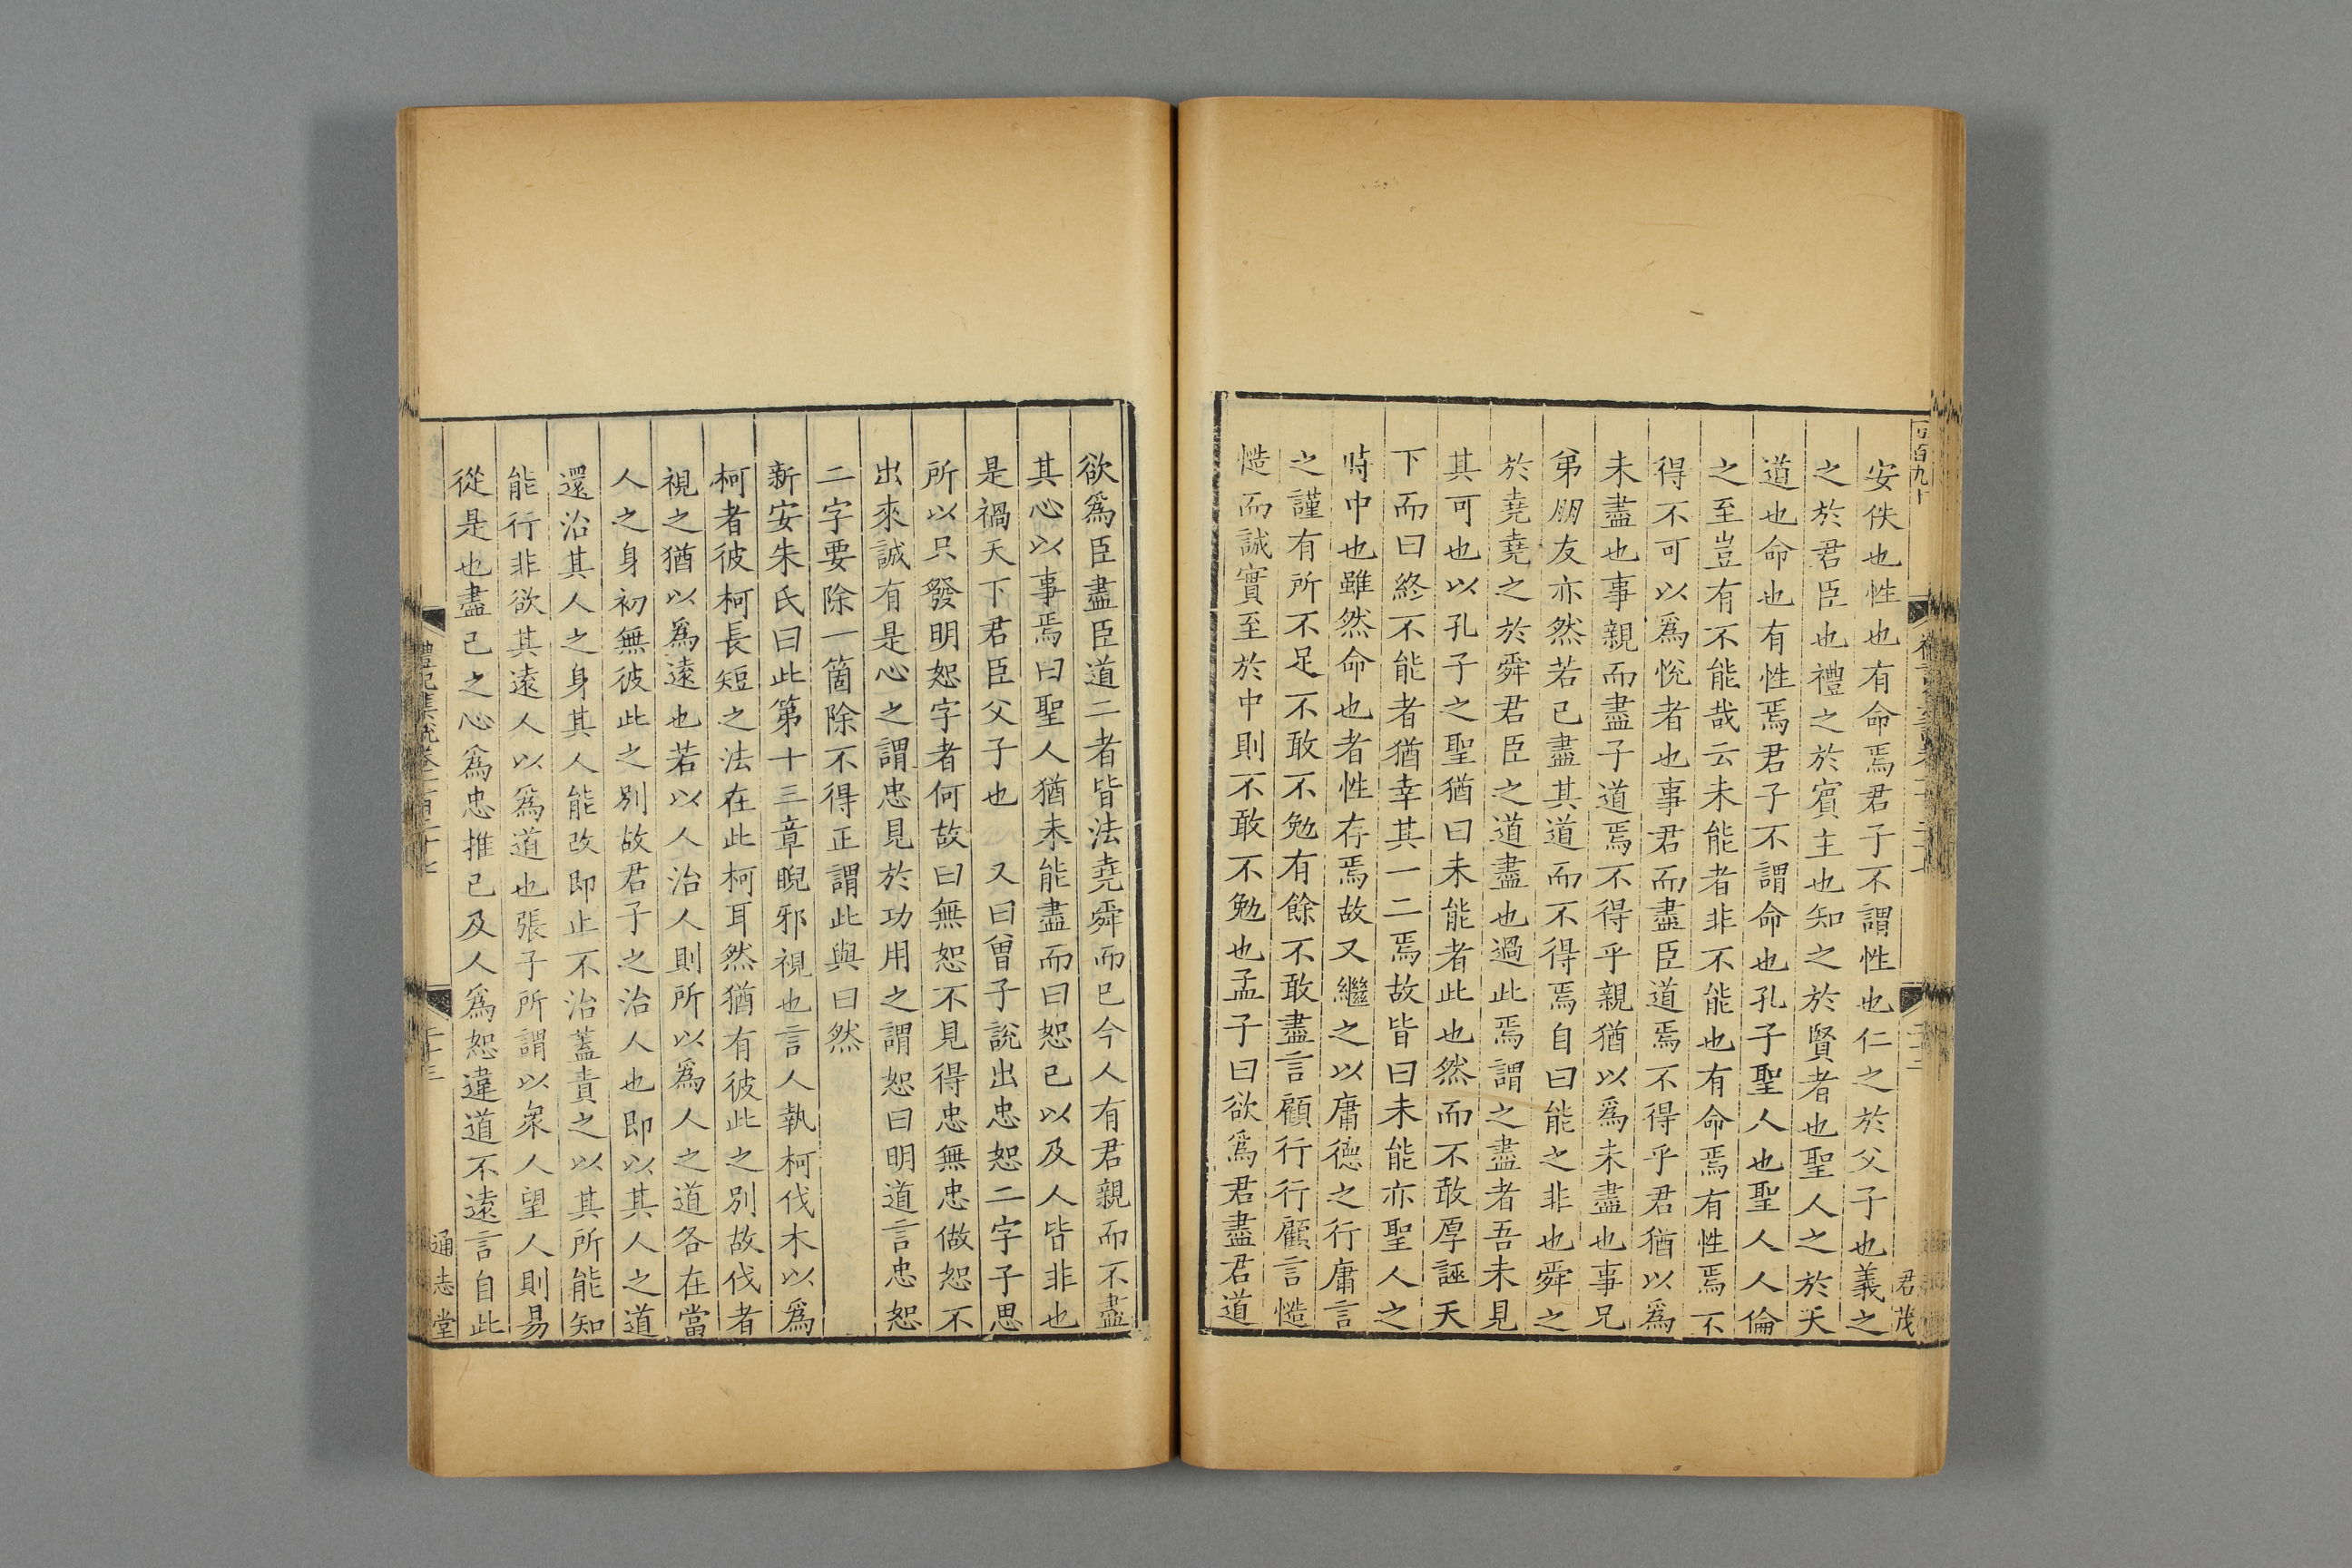 安佚也性也有命焉君子不謂性也仁之於父子也義之
之於君臣也禮之於賓主也知之於賢者也聖人之於天
道也命也有性焉君子不謂命也孔子聖人也聖人人倫
之至豈有不能哉云未能者非不能也有命焉有性焉不
得不可以爲悅者也事君而盡臣道焉不得乎君猶以爲
未盡也事親而盡子道焉不得乎親猶以爲未盡也事兄
弟朋友亦然若己盡其道而不得焉自曰能之非也舜之
於堯堯之於舜君臣之道盡也過此焉謂之盡者吾未見
其可也以孔子之聖猶曰未能者此也然而不敢厚誣天
下而曰終不能者猶幸其一二焉故皆曰未能亦聖人之
時中也雖然命也者性存焉故又繼之以庸德之行庸言
之謹有所不足不敢不勉有餘不敢盡言顧行行顧言慥
慥而誠實至於中則不敢不勉也孟子曰欲爲君盡君道
君茂
欲爲臣盡臣道二者皆法堯舜而已今人有君親而不盡
其心以事焉曰聖人猶未能盡而曰恕己以及人皆非也
是禍天下君臣父子也 又曰曾子說出忠恕二字子思
所以只發明恕字者何故曰無恕不見得忠無忠做恕不
出來誠有是心之謂忠見於功用之謂恕曰明道言忠恕
二字要除一箇除不得正謂此與曰然
新安朱氏曰此第十三章睨邪視也言人執柯伐木以爲
柯者彼柯長短之法在此柯耳然猶有彼此之別故伐者
視之猶以爲遠也若以人治人則所以爲人之道各在當
人之身初無彼此之別故君子之治人也即以其人之道
還治其人之身其人能改即止不治蓋責之以其所能知
能行非欲其遠人以爲道也張子所謂以衆人望人則易
從是也盡己之心爲忠推己及人爲恕違道不遠言自此
通志堂